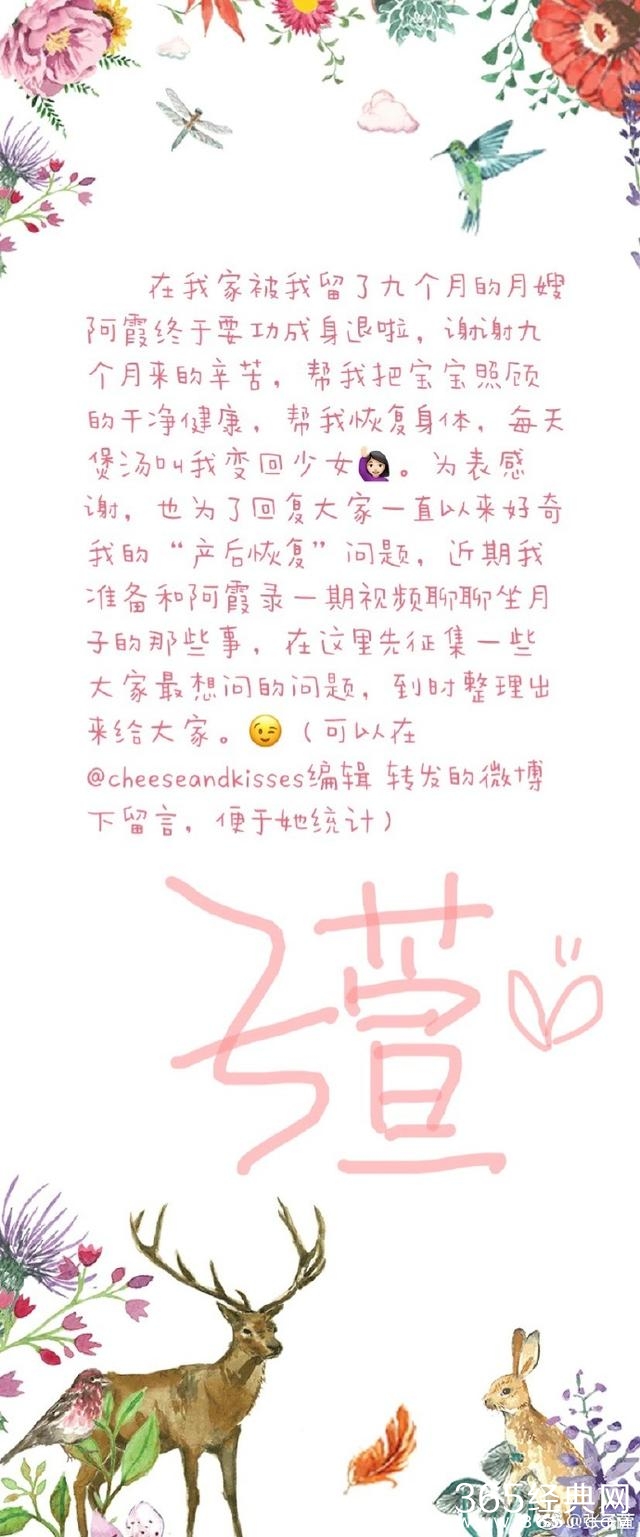 在我家被我留了九个月的月嫂
阿霞终于要功成身退啦，谢谢九
个月来的辛苦，帮我把宝宝照顾
的干净健康，帮我恢复身体，每天
煲汤叫我变回少女🙋🏻‍♀️。为表感
谢，也为了回复大家一直以来好奇
我的“产后恢复”问题，近期我
准备和阿霞录一期视频聊聊坐月
子的那些事，在这里先征集一些
大家最想问的问题，到时整理出
来给大家。😉（可以在
@cheeseandkisses编辑 转发的微博
下留言，便于她统计）
子萱
365经典网